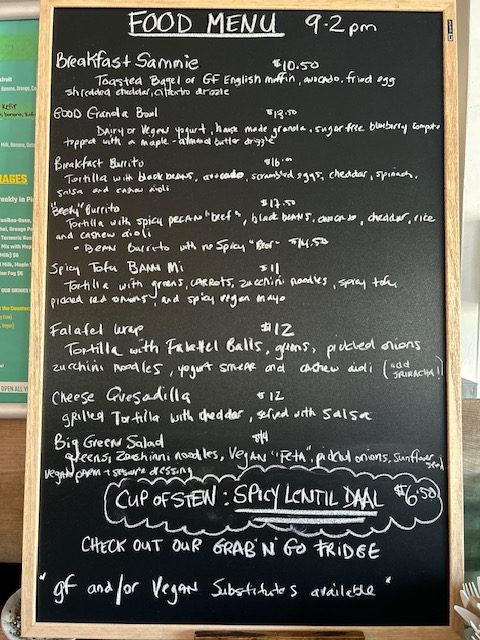 FOOD MENU 9-2pm
Breakfast Sammie $10.50
Toasted Bagel or GF English muffin, avocado, fried egg
shredded cheddar, cilantro drizzle
GOOD Granola Bowl
Dairy or Vegan yogurt, house made granola, sugar free blueberry compote
topped with a maple-almond butter drizzle
Breakfast Burrito
Tortilla with black beans, avocado, scrambled eggs, cheddar, spinach,
salsa and cashew aioli
"Beefy" Burrito $17.50
Tortilla with spicy pecan "beef", black beans, avocado, cheddar, rice
and cashew aioli
• BEAN Burrito with no spicy "Beef" $14.50
Spicy Tofu Banh Mi $11
Tortilla with greens, carrots, zucchini noodles, spicy tofu,
pickled red onions, and spicy vegan mayo
Falafel wrap $12
Tortilla with Falaffel Balls, greens, pickled onions
zucchini noodles, yogurt smear and cashew aioli (add
SRIRACHA!)
Cheese Quesadilla $12
grilled Tortilla with cheddar, served with salsa
Big Green Salad
greens, Zucchini noodles, Vegan "Feta", pickled onions, sunflower seed
vegan parm + sesame dressing
CUP OF STEW: SPICY LENTIL DAAL $6.50
CHECK OUT OUR GRAB 'N' GO FRIDGE
"gf and/or Vegan Substitutes available"
RAGES
OPEN ALL Y